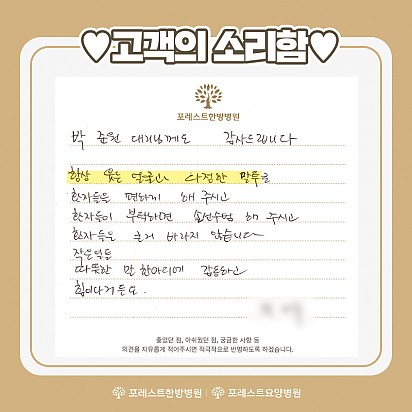 ♥고객의 소리함♥
포레스트한방병원
박 준원 대리님께도 감사드립니다
항상 웃는 얼굴과 다정한 말투로
환자들을 편하게 해 주시고
환자들이 부탁하면 솔선수범 해 주시고
환자들은 큰거 바라지 않습니다
작은일도
따뜻한 말 한마디에 감동하고
힘이나거든요.
좋았던 점, 아쉬웠던 점, 궁금한 사항 등
의견을 자유롭게 적어주시면 적극적으로 반영하도록 하겠습니다.
포레스트한방병원 | 포레스트요양병원